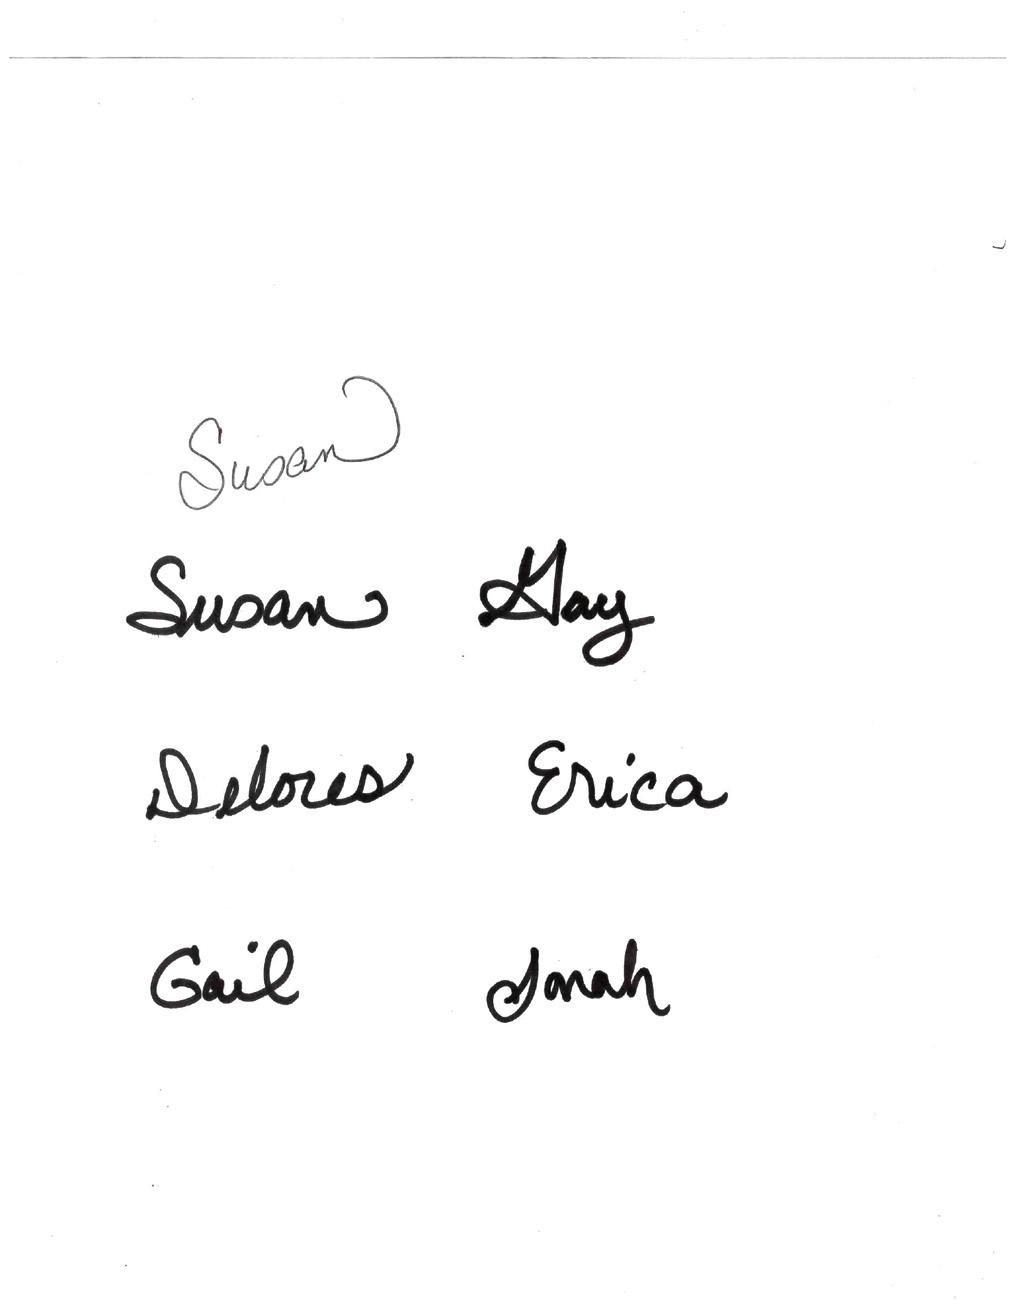 Susan
Susan Gay
Delores Erica
Gail Jonah